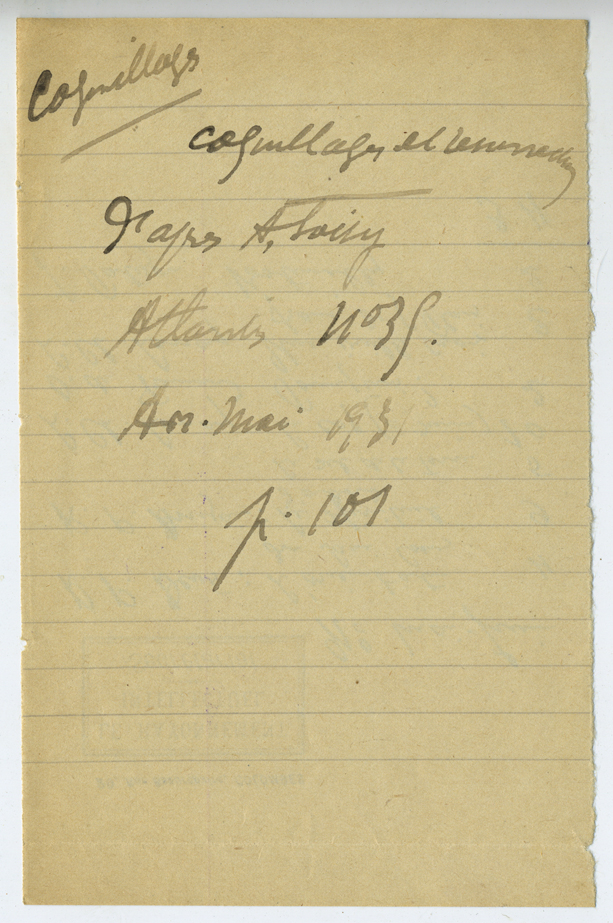 Coquillages
coquillages et résurrection
D'après A. Loisy
Atlantis n° 35.
Avr. Mai 1931
p. 101